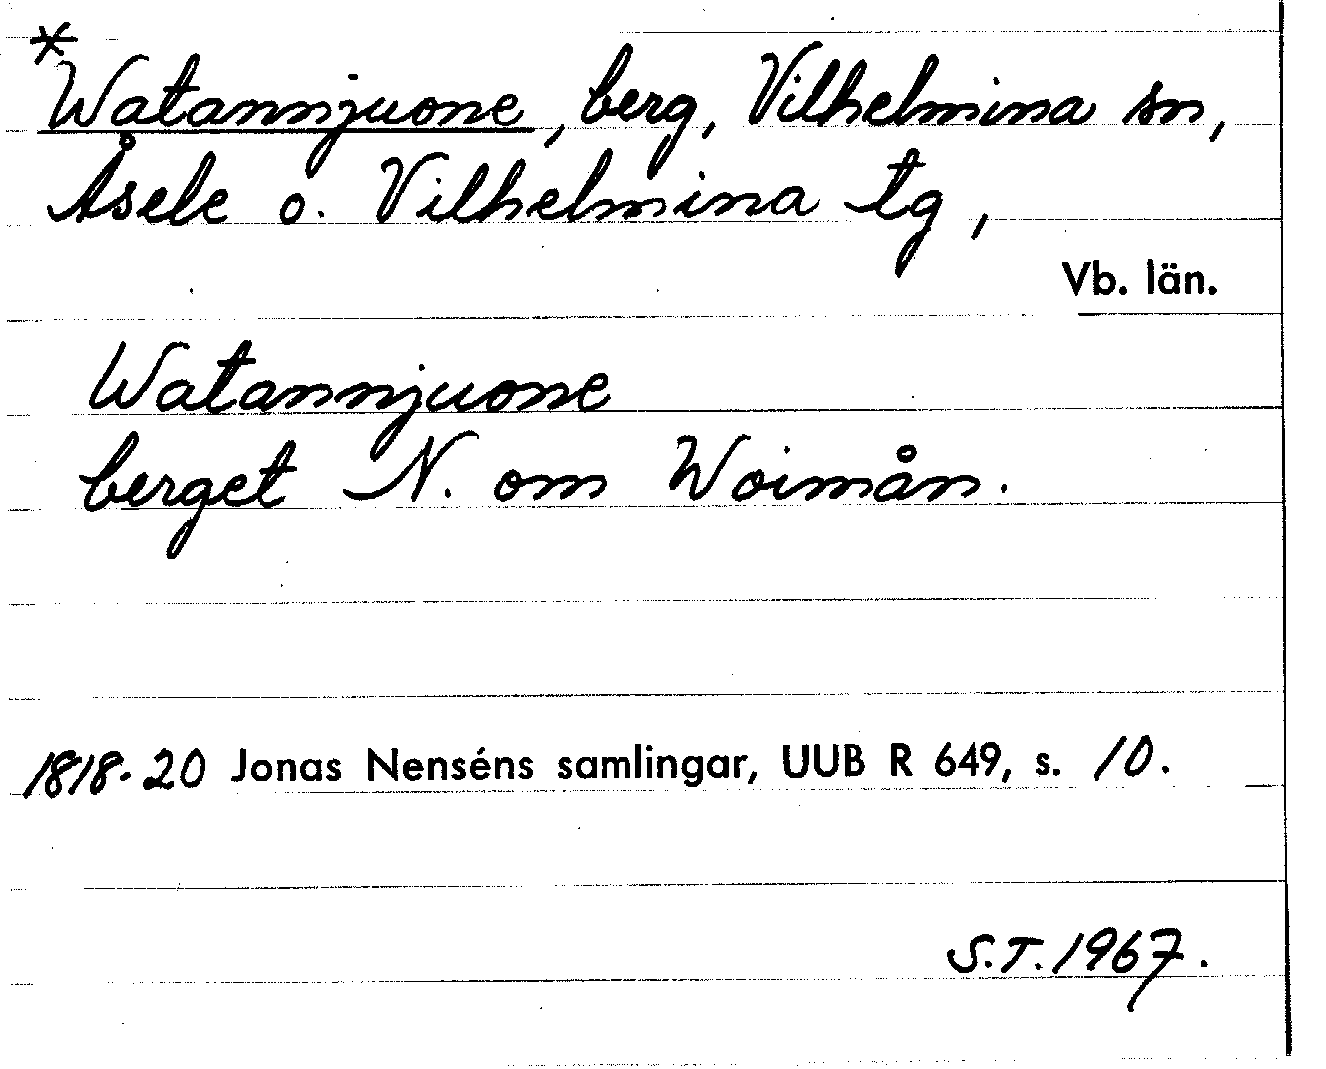 *Watannjuone, berg, Vilhelmina sn,
Åsele o. Vilhelmina tg,
Vb. län.
Watannjuone
berget N. om Woimån.
1818-20 Jonas Nenséns samlingar, UUB R 649, s. 10.
S.T. 1967.